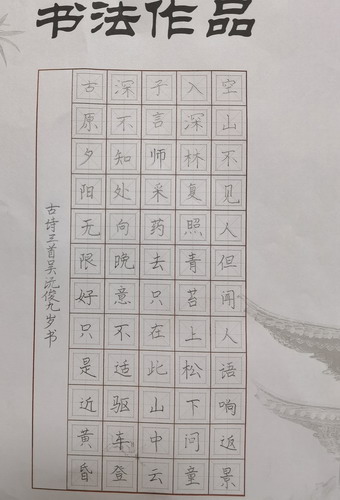 书法作品
空山不见人但闻人语响返景
入深林复照青苔上松下问童
子言师采药去只在此山中云
深不知处向晚意不适驱车登
古原夕阳无限好只是近黄昏
古诗三首吴沅俊九岁书